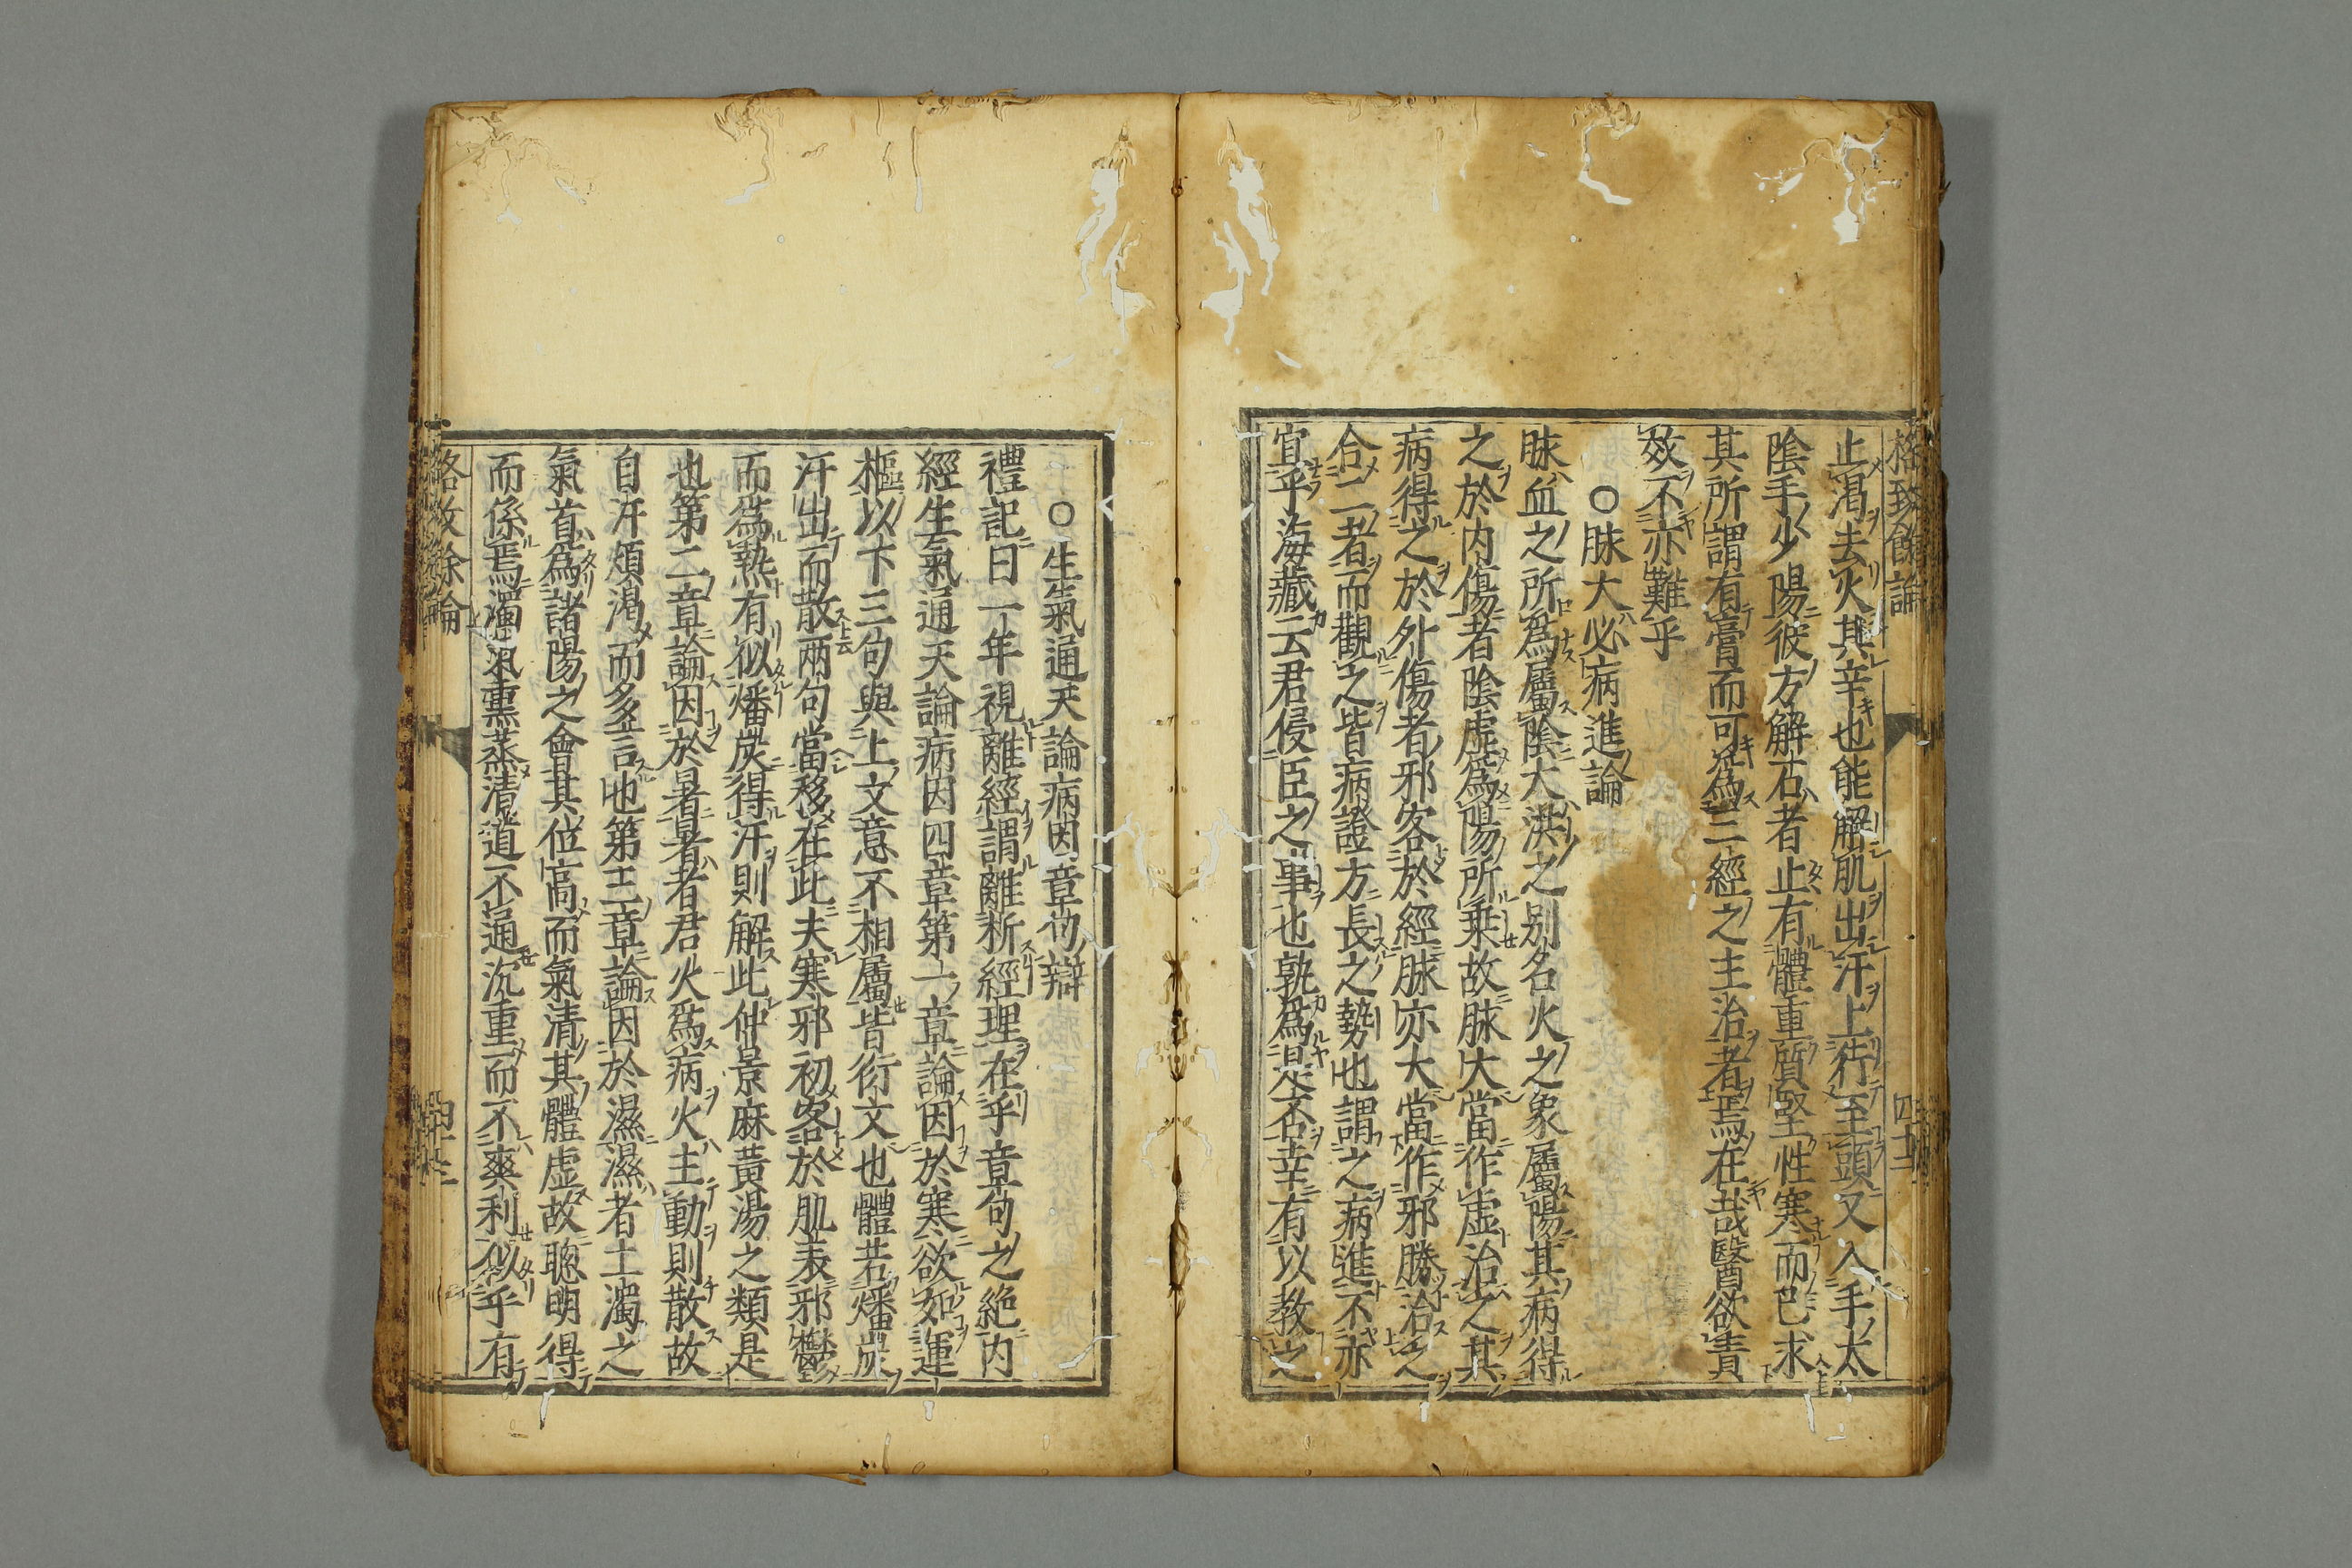 格致餘論
止渇去火其辛也能解肌出汗上行至頭又入手太
陰手少陽彼方解石者止有體重質堅性寒而已求
其所謂有膏而可爲三經之主治者焉在哉醫欲責
效不亦難乎
○脉大必病進論
脉血之所爲屬陰大洪之别名火之象屬陽其病得
之於内傷者陰虚爲陽所乗故脉大當作虚治之其
病得之於外傷者邪客於經脉亦大當作邪勝治之
合二者而觀之皆病證方長之勢也謂之病進不亦
宜乎海藏云君侵臣之事也孰爲是否幸有以教之
○生氣通天論病因章句辯
禮記曰一年視離經謂離析經理在乎章句之絶内
經生氣通天論病因四章第一章論因於寒欲如運
樞以下三句與上文意不相屬皆衍文也體若燔炭
汗出而散兩句當移在此夫寒邪初客於肌表邪鬱
而爲熱有似燔炭得汗則解此仲景麻黄湯之類是
也第二章論因於暑暑者君火爲病火主動則散故
自汗煩渇而多言也第三章論因於濕濕者土濁之
氣首爲諸陽之會其位高而氣清其體虚故聰明得
而係焉濁氣熏蒸清道不通沉重而不爽利似乎有
格致餘論